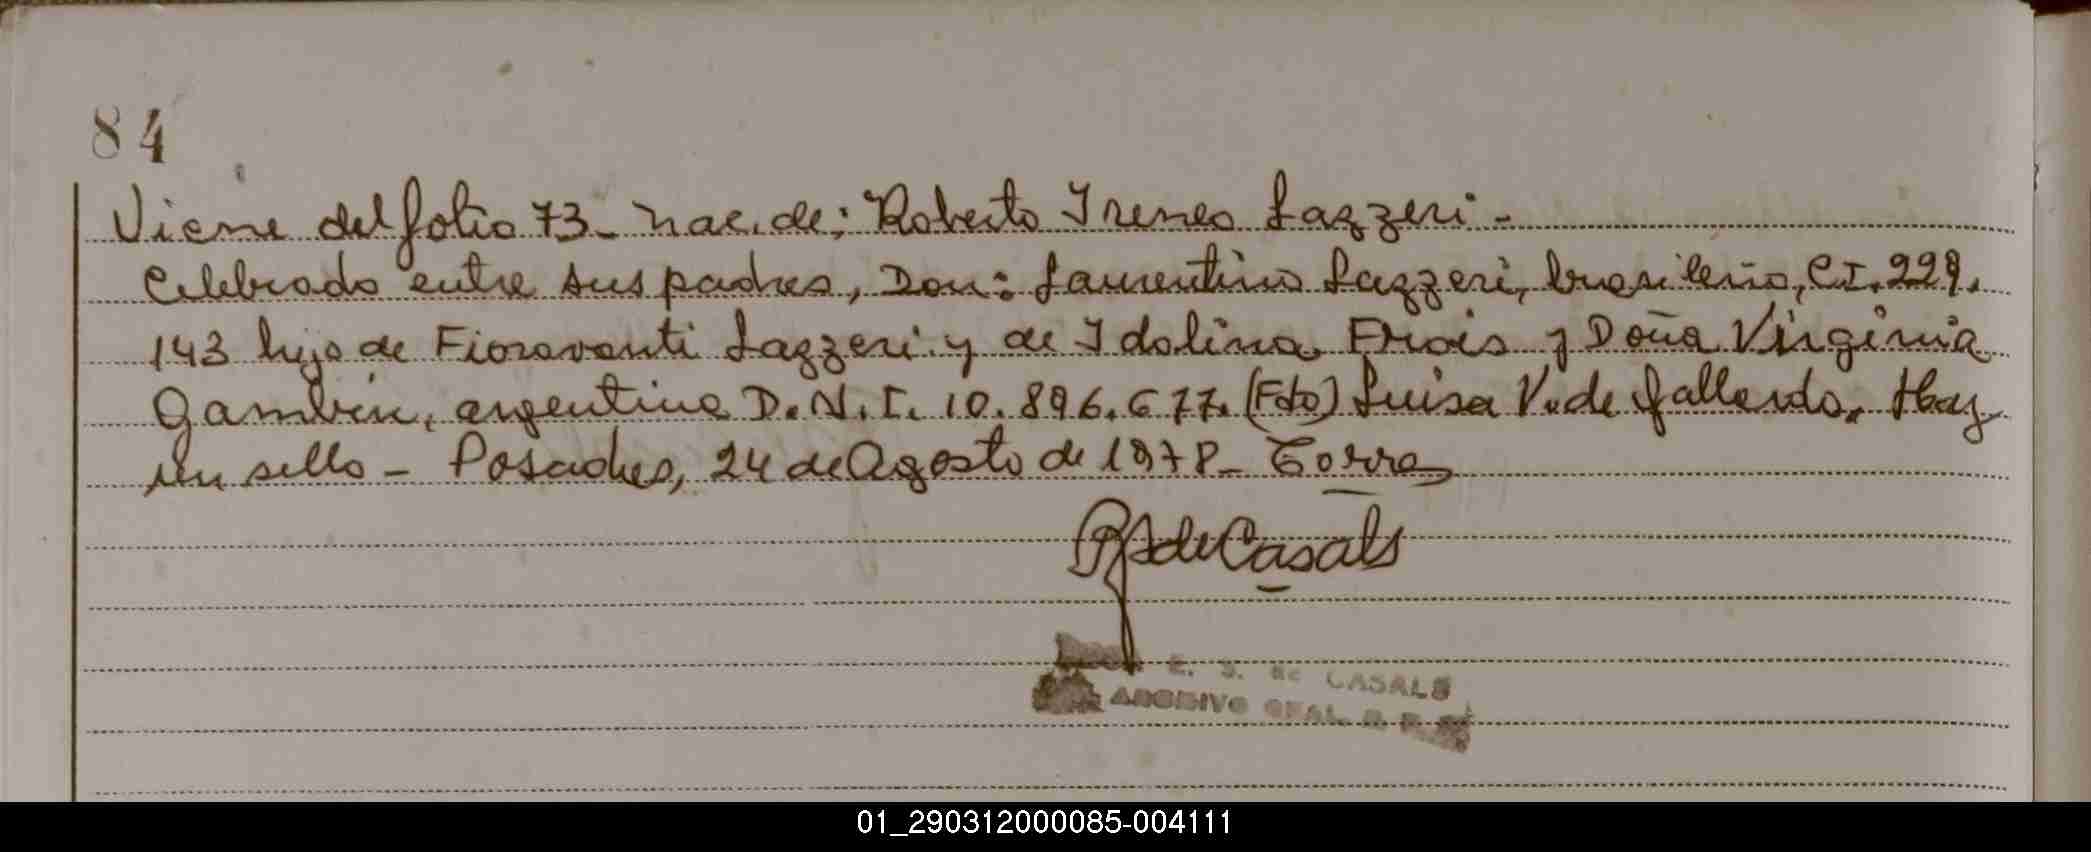 84
Viene del folio 73_ Nac. de: Roberto Ireneo Lazzeri -
Celebrado entre sus padres, Don: Laurentino Lazzeri, brasileño, C.I. 229.
143 hijo de Fioravanti Lazzeri y de Idolina Frois y Doña Virginia
Gambin, argentina D.N.I. 10.896.677. (Fdo) Luisa V. de Gallardo. Hay
un sello - Posadas, 24 de Agosto de 1978_ Torres
de Casals
E. S. de CASALS
ARCHIVO GRAL. R. P.
01_290312000085-004111